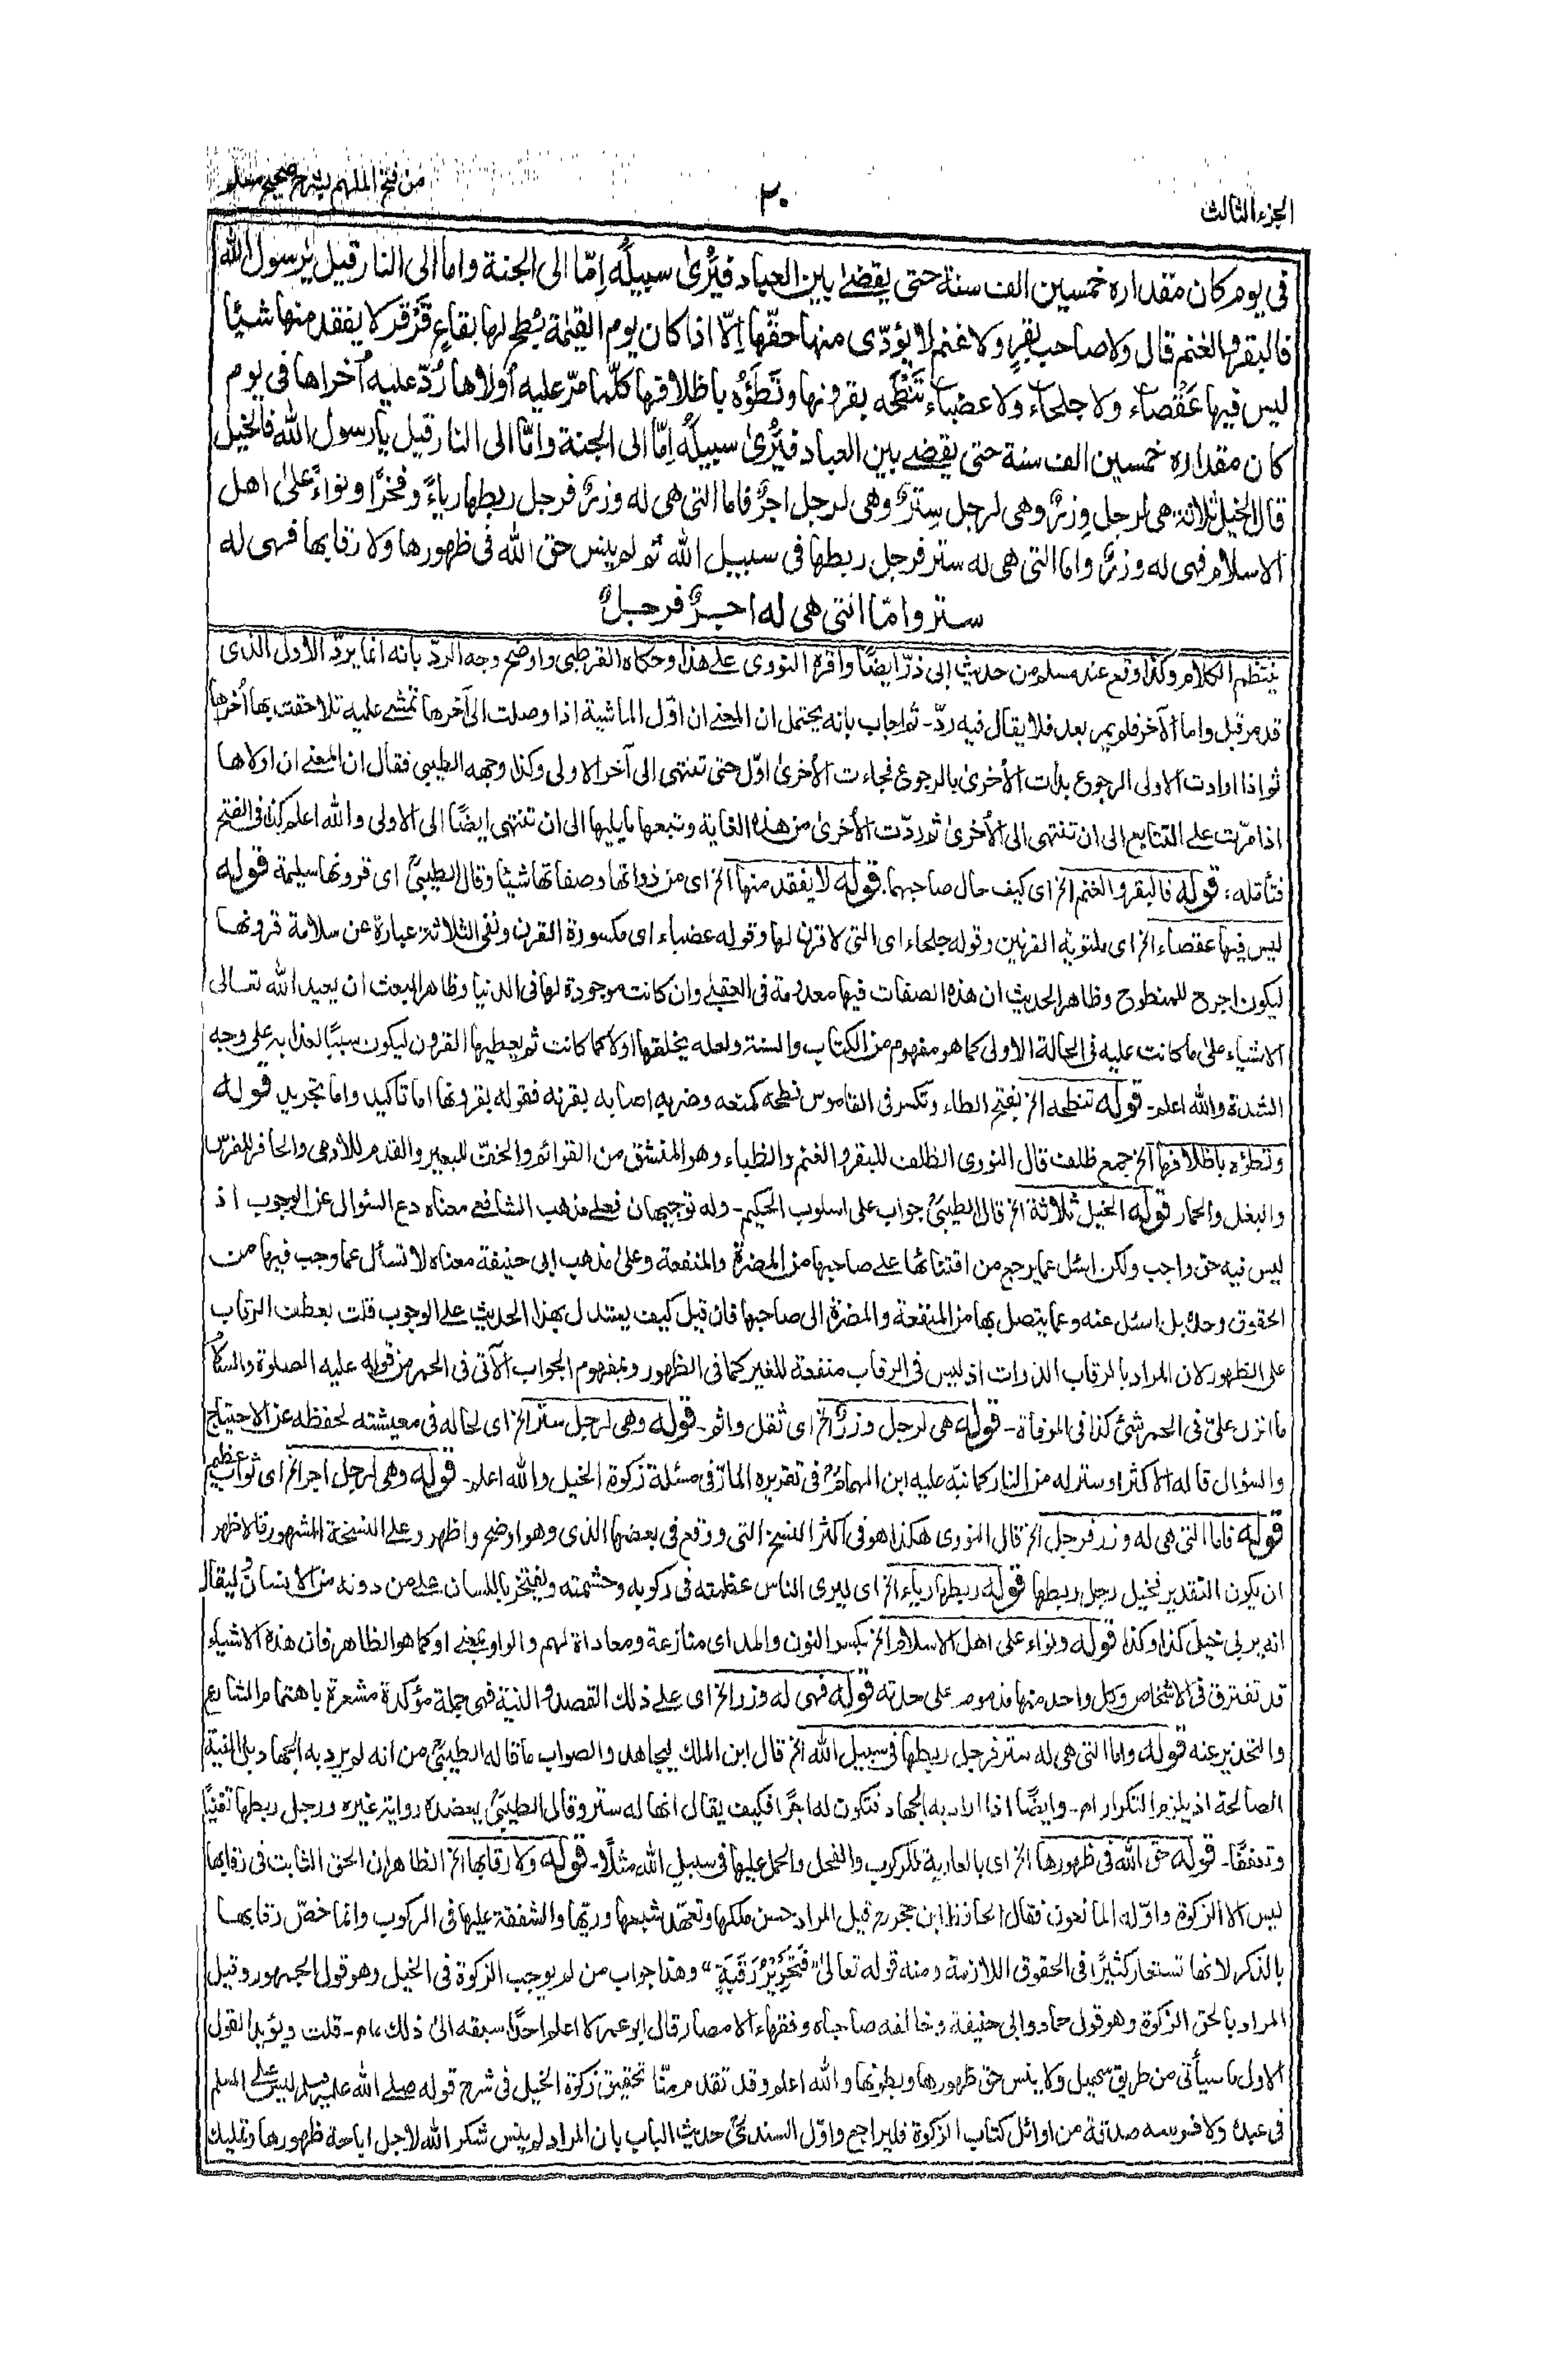 الجزء الثالث
٢٠
من فتح الملهم بشرح صحيح مسلم
في يوم كان مقداره خمسين الف سنة حتى يقضى بين العباد فيُرى سبيلُه اِمّا الى الجنة واما الى النار قيل يٰرسول الله
فالبقر والغنم قال ولا صاحب بقرٍ ولا غنم لا يؤدّى منها حقّها اِلّا اذا كان يوم القيٰمة بُطح لها بقاعٍ قَرْقر لا يفقد منها شيئًا
ليس فيها عَقْصاء ولا جلحاء ولا عضباء تَنْطَحه بقرونها وتَطَؤُه باظلافها كلّما مرّ عليه اُولاها رُدّ عليه اُخراها في يوم
كان مقداره خمسين الف سنة حتى يقضى بين العباد فيُرى سبيلُه اِمّا الى الجنة وامّا الى النار قيل يا رسول الله فالخيل
قال الخيل ثلاثة هي لرجل وِزرٌ وهي لرجل سِترٌ وهي لرجل اجرٌ فاما التي هي له وزرٌ فرجل ربطها رياءً وفخرًا ونواءً على اهل
الاسلام فهي له وزرٌ واما التي هي له ستر فرجل ربطها في سبيل الله ثم لم ينس حق الله في ظهورها ولا رقابها فهي له
ستر وامّا التي هي له اجرٌ فرجلٌ
ينتظم الكلام وكذا وقع عند مسلم من حديث ابي ذرّ ايضًا واقره النووى على هذا وحكاه القرطبى واوضح وجه الردّ بانه انما يردّ الاول الذى
قد مر قبل واما الآخر فلم يمر بعد فلا يقال فيه ردّ۔ ثم اجاب بانه يحتمل ان المعنى ان اوّل الماشية اذا وصلت الى آخرها تمشى عليه تلاحقت بها اُخراها
ثم اذا ارادت الاولى الرجوع بدأت الأخرى بالرجوع فجاءت الأخرى اوّل حتى تنتهى الى آخر الاولى وكذا وجهه الطيبى فقال ان المعنى ان اولاها
اذا مرّت على التتابع الى ان تنتهى الى الأخرى ثم ردّت الأخرى من هذه الغاية وتبعها ما يليها الى ان تنتهى ايضًا الى الاولى والله اعلم كذا فى الفتح
فتأمله؛ قوله فالبقر والغنم الخ اى كيف حال صاحبهما. قوله لا يفقد منها الخ اى من ذواتها وصفاتها شيئا وقال الطيبىؒ اى قرونها سليمة قوله
ليس فيها عقصاء الخ اى ملتوية القرنين وقوله جلحاء اى التى لا قرن لها وقوله عضباء اى مكسورة القرن ونفى الثلاثة عبارة عن سلامة قرونها
ليكون اجرح للمنطوح وظاهر الحديث ان هذه الصفات فيها معدومة فى العقبى وان كانت موجودة لها فى الدنيا وظاهر البعث ان يعيد الله تعالى
الاشياء على ما كانت عليه فى الحالة الاولى كما هو مفهوم من الكتاب والسنة ولعله يخلقها اولا كما كانت ثم يعطيها القرون ليكون سببًا لعذابه على وجه
الشدة والله اعلم۔ قوله تنطحه الخ بفتح الطاء وتكسر فى القاموس نطحه كمنعه وضربه اصابه بقرنه فقوله بقرونها اما تاكيد واما تجريد قوله
وتطؤه باظلافها الخ جمع ظلف قال النووى الظلف للبقر والغنم والظباء وهو المنشق من القوائم والخفّ للبعير والقدم للآدمى والحافر للفرس
والبغل والحمار قوله الخيل ثلاثة الخ قال الطيبىؒ جواب على اسلوب الحكيم۔ وله توجيهان فعلى مذهب الشافعى معناه دع السئوال عن الوجوب اذ
ليس فيه حق واجب ولكن اسئل عما يرجع من اقتنائها على صاحبها من المضرة والمنفعة وعلى مذهب ابى حنيفة معناه لا تسأل عما وجب فيها من
الحقوق وحده بل اسئل عنه وعما يتصل بها من المنفعة والمضرة الى صاحبها فان قيل كيف يستدل بهذا الحديث على الوجوب قلت بعطف الرقاب
على الظهور لان المراد بالرقاب الذوات اذ ليس فى الرقاب منفعة للغير كما فى الظهور وبمفهوم الجواب الآتى فى الحمر من قوله عليه الصلوة والسلام
ما انزل علىّ فى الحمر شئ كذا فى المرقاة۔ قوله هى لرجل وزرٌ الخ اى ثقل واثم۔ قوله وهى لرجل ستر الخ اى لحاله فى معيشته لحفظه عن الاحتياج
والسؤال قاله الاكثر او ستر له من النار كما نبّه عليه ابن الهمامؒ فى تقريره المارّ فى مسئلة زكوة الخيل والله اعلم۔ قوله وهى لرجل اجر الخ اى ثواب عظيم
قوله فاما التى هى له وزر فرجل الخ قال النووى هكذا هو فى اكثر النسخ التى ووقع فى بعضها الذى وهو اوضح واظهر وعلى النسخة المشهورة فالاظهر
ان يكون التقدير فخيل رجل ربطها قوله ربطها رياء الخ اى ليرى الناس عظمته فى ركوبه وحشمته ويفتخر باللسان على من دونه من الانسان ليقال
انه يربى خيل كذا وكذا قوله ونواء على اهل الاسلام الخ بكسر النون والمد اى منازعة ومعاداة لهم والواو بمعنى او كما هو الظاهر فان هذه الاشياء
قد تفترق فى الاشخاص وكل واحد منها مذموم على حدته قوله فهى له وزر الخ اى على ذلك القصد والنية فهى جملة مؤكدة مشعرة باهتمام الشارع
والتحذير عنه قوله واما التى هى له ستر فرجل ربطها فى سبيل الله الخ قال ابن الملك ليجاهد والصواب ما قاله الطيبىؒ من انه لم يرد به الجهاد بل النية
الصالحة اذ يلزم التكرار ام۔ وايضًا اذا اراد به الجهاد فتكون له اجرًا فكيف يقال انها له ستر وقال الطيبىؒ يعضده رواية غيره ورجل ربطها تغنيًا
وتعففًا۔ قوله حق الله فى ظهورها الخ اى بالعارية للركوب والفحل والحمل عليها فى سبيل الله مثلًا۔ قوله ولا رقابها الخ الظاهر ان الحق الثابت فى رقابها
ليس الا الزكوة واوّله المانعون فقال الحافظ ابن حجرؒ قيل المراد حسن ملكها وتعهّد شبعها وريّها والشفقة عليها فى الركوب وانما خصّ رقابها
بالذكر لانها تستعار كثيرًا فى الحقوق اللازمة ومنه قوله تعالىٰ "فَتَحْرِيْرُ رَقَبَةٍ" وهذا جواب من لم يوجب الزكوة فى الخيل وهو قول الجمهور وقيل
المراد بالحق الزكوة وهو قول حماد وابى حنيفة وخالفه صاحباه وفقهاء الامصار قال ابو عمر لا اعلم احدًا سبقه الىٰ ذلك ام۔ قلت ويؤيد القول
الاول ما سيأتى من طريق سهيل ولا ينس حق ظهورها وبطونها والله اعلم وقد تقدم منّا تحقيق زكوة الخيل فى شرح قوله صلى الله عليه وسلم ليس على المسلم
فى عبده ولا فرسه صدقة من اوائل كتاب الزكوة فليراجع واوّل السندىؒ حديث الباب بان المراد لم ينس شكر الله لاجل اباحة ظهورها وتمليك